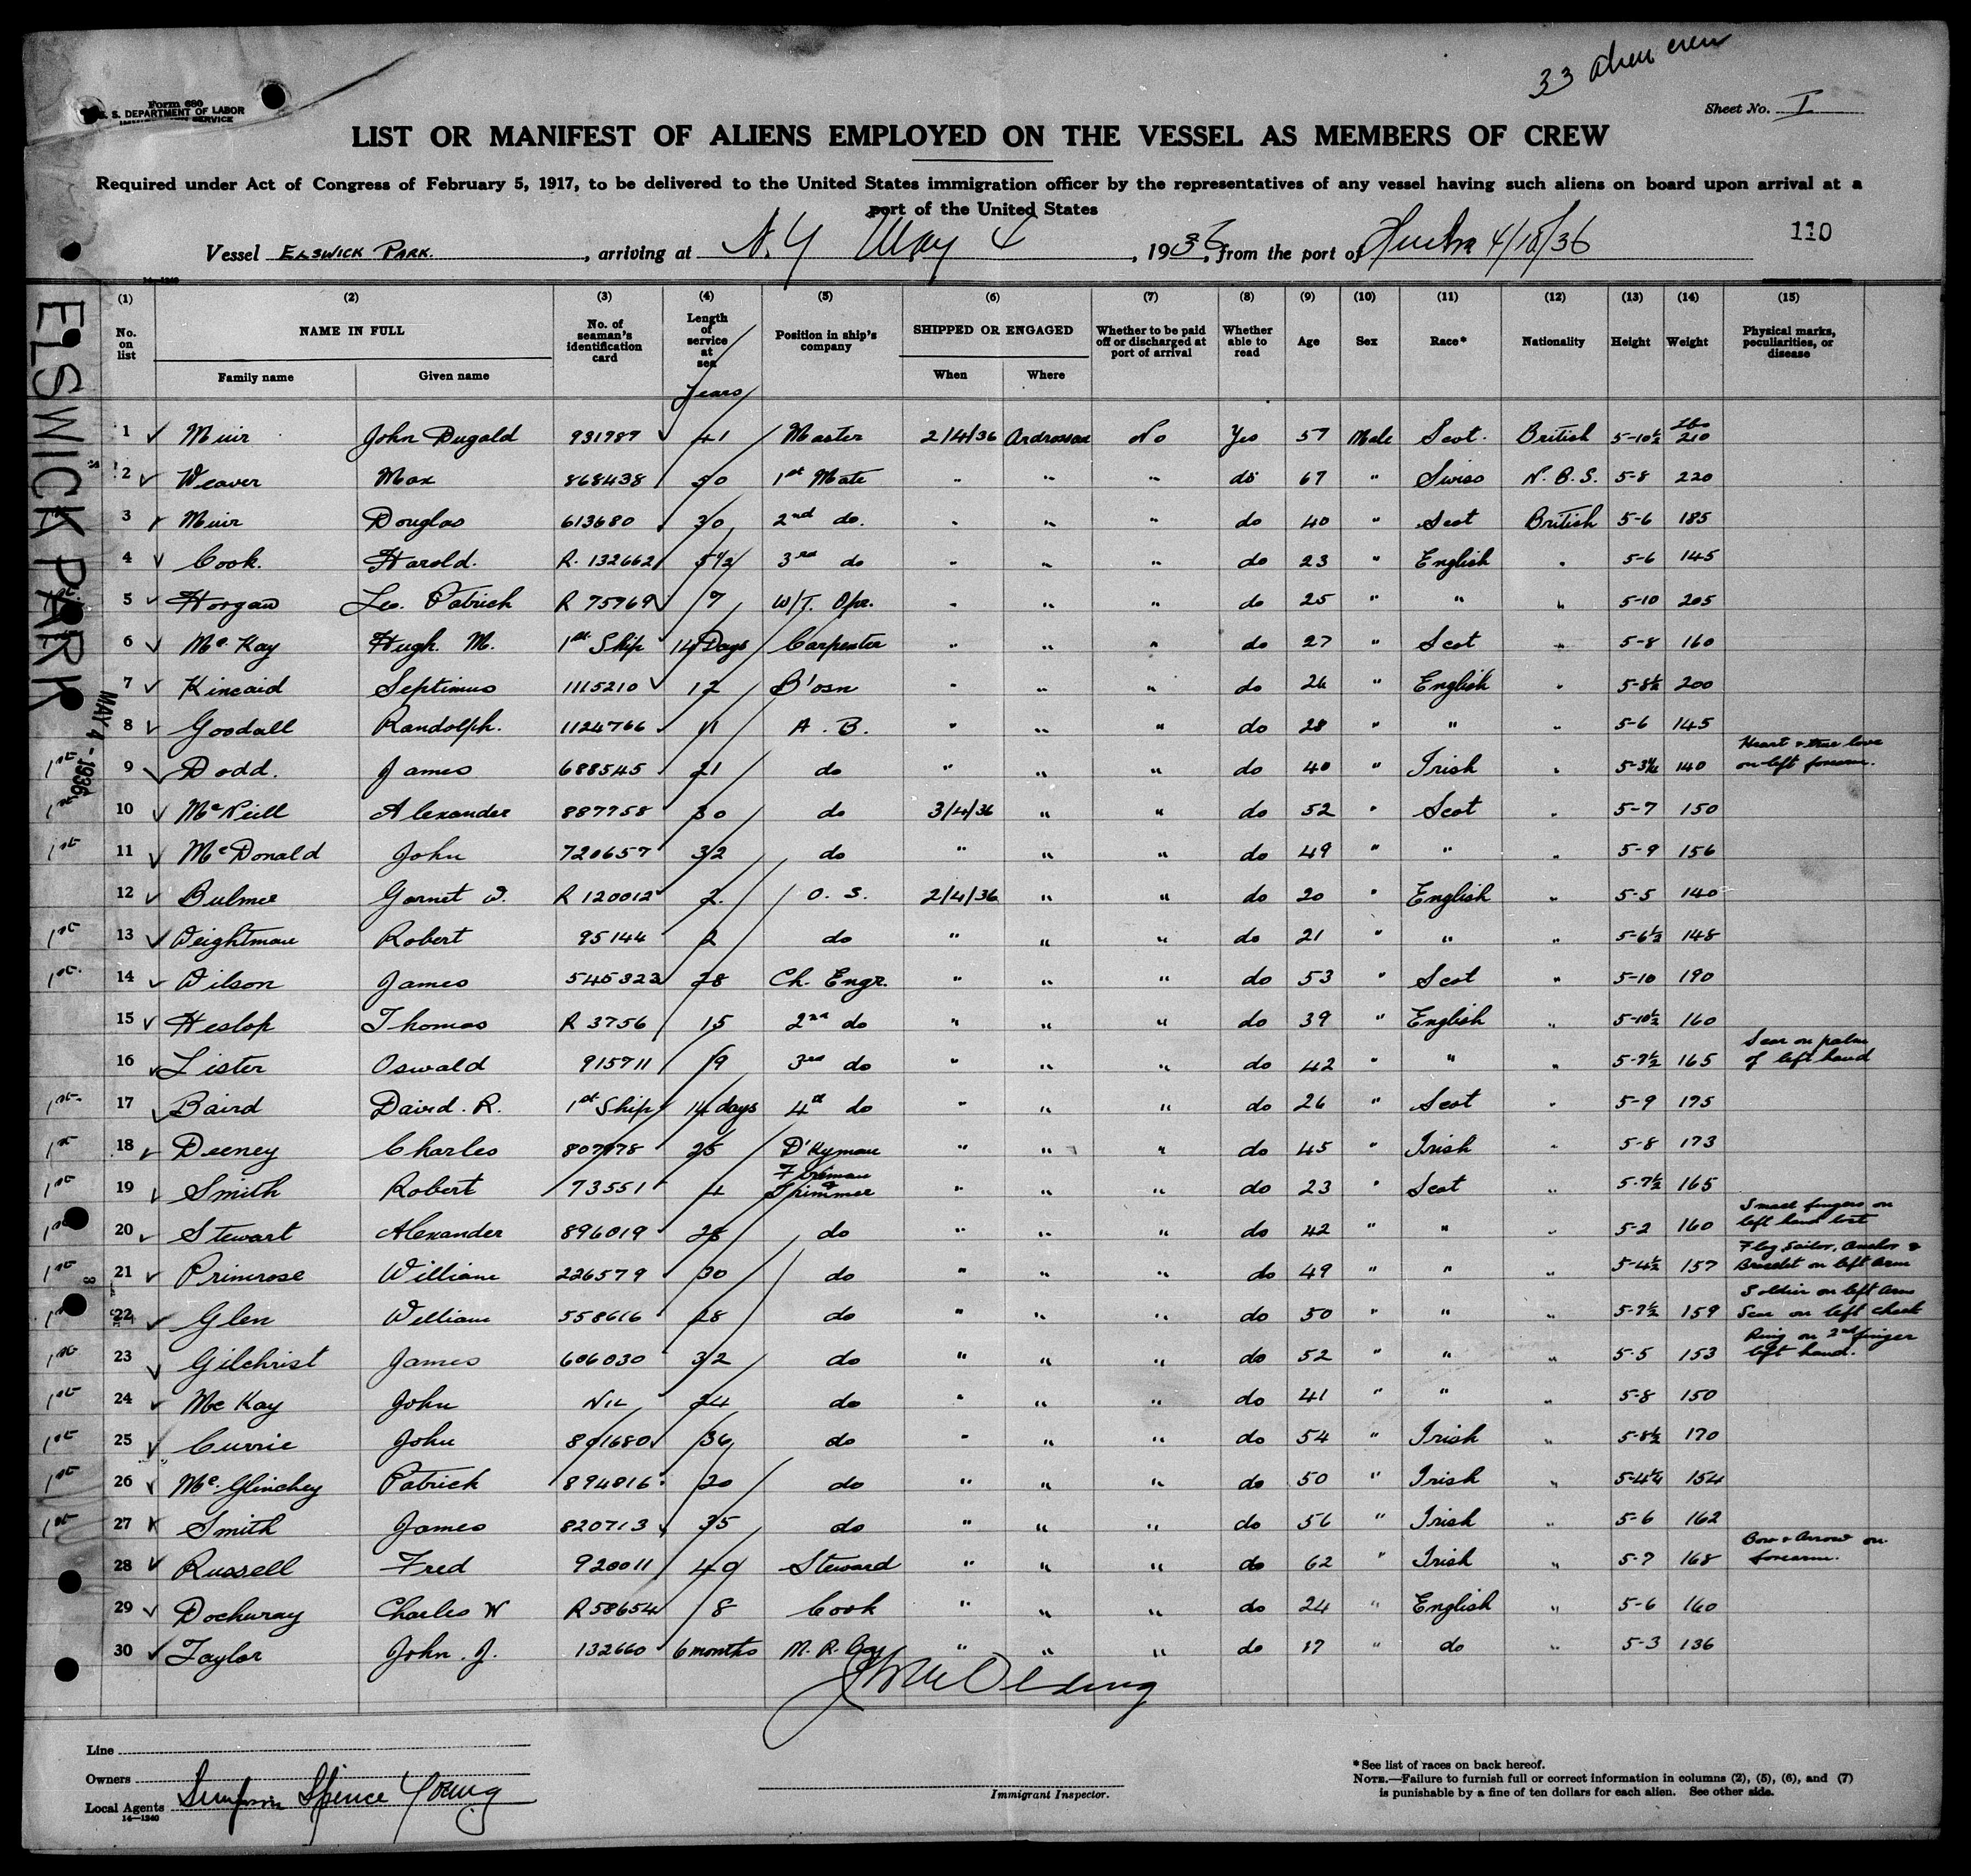 33 alien crew
Form 680
U. S. DEPARTMENT OF LABOR
IMMIGRATION SERVICE
Sheet No. I
LIST OR MANIFEST OF ALIENS EMPLOYED ON THE VESSEL AS MEMBERS OF CREW
Required under Act of Congress of February 5, 1917, to be delivered to the United States immigration officer by the representatives of any vessel having such aliens on board upon arrival at a
port of the United States
Vessel ELSWICK PARK. , arriving at N.Y May 4 , 1936, from the port of 4/18/36
110
14-1240
ELSWICK PARK
MAY 4 - 1936
(1) (2) (3) (4) (5) (6) (7) (8) (9) (10) (11) (12) (13) (14) (15)
No. on list NAME IN FULL Family name Given name No. of seaman's identification card Length of service at sea Position in ship's company SHIPPED OR ENGAGED When Where Whether to be paid off or discharged at port of arrival Whether able to read Age Sex Race* Nationality Height Weight Physical marks, peculiarities, or disease
Years
1 Muir John Dugald 931787 41 Master 2/4/36 Ardrossan No Yes 57 Male Scot. British 5-10½ Lbs 210
2 Weaver Max 868438 50 1st Mate " " " do 67 " Swiss N.B.S. 5-8 220
3 Muir Douglas 613680 30 2nd do. " " " do 40 " Scot British 5-6 185
4 Cook. Harold. R. 132662 5½ 3rd do " " " do 23 " English " 5-6 145
5 Horgan Leo. Patrick R 75769 7 W/T. Opr. " " " do 25 " " " 5-10 205
6 Mc Kay Hugh. M. 1st Ship 14 Days Carpenter " " " do 27 " Scot " 5-8 160
7 Kincaid Septimus 1115210 12 B'osn " " " do 26 " English " 5-8½ 200
8 Goodall Randolph. 1124766 11 A.B. " " " do 28 " " " 5-6 145
1st 9 Dodd. James 688545 21 do " " " do 40 " Irish " 5-3¾ 140 Heart & true love on left forearm.
1st 10 McNeill Alexander 887758 30 do 3/4/36 " " do 52 " Scot " 5-7 150
1st 11 McDonald John 720657 32 do " " " do 49 " " " 5-9 156
12 Bulmer Garnet 	R 120012 2. O.S. 2/4/36 " " do 20 " English " 5-5 140
1st 13 Weightman Robert 95144 2 do " " " do 21 " " " 5-6½ 148
1st 14 Wilson James 545323 28 Ch. Engr. " " " do 53 " Scot " 5-10 190
15 Heslop Thomas R 3756 15 2nd do " " " do 39 " English " 5-10½ 160
16 Lister Oswald 915711 19 3rd do " " " do 42 " " " 5-7½ 165 Scar on palm of left hand
1st 17 Baird David. R. 1st Ship 14 days 4th do " " " do 26 " Scot " 5-9 175
1st 18 Deeney Charles 807178 25 D'kyman " " " do 45 " Irish " 5-8 173
1st 19 Smith Robert 73551 4 Fireman & Trimmer " " " do 23 " Scot " 5-7½ 165
1st 20 Stewart Alexander 896019 28 do " " " do 42 " " " 5-2 160 Small fingers on left hand lost
1st 21 Primrose William 226579 30 do " " " do 49 " " " 5-4½ 157 Flag, Sailor, Anchor & Bracelet on left arm
1st 22 Glen William 558616 28 do " " " do 50 " " " 5-7½ 159 Soldier on left arm Scar on left cheek
1st 23 Gilchrist James 606030 32 do " " " do 52 " " " 5-5 153 Ring on 2nd finger left hand.
1st 24 Mc Kay John Nil 24 do " " " do 41 " " " 5-8 150
1st 25 Currie John 801680 36 do " " " do 54 " Irish " 5-8½ 170
1st 26 Mc.Glinchey Patrick 894816 20 do " " " do 50 " Irish " 5-4¼ 154
1st 27 Smith James 820713 35 do " " " do 56 " Irish " 5-6 162
28 Russell Fred 920011 40 Steward " " " do 62 " Irish " 5-7 168 Bow & Arrow on forearm.
29 Dochuray Charles W R58654 8 Cook " " " do 24 " English " 5-6 160
30 Taylor John. J. 132660 6 months M.R. Boy " " " do 17 " do " 5-3 136
Line
Owners
Local Agents Simpson Spence Young
14-1240
Immigrant Inspector.
*See list of races on back hereof.
NOTE.—Failure to furnish full or correct information in columns (2), (5), (6), and (7)
is punishable by a fine of ten dollars for each alien. See other side.